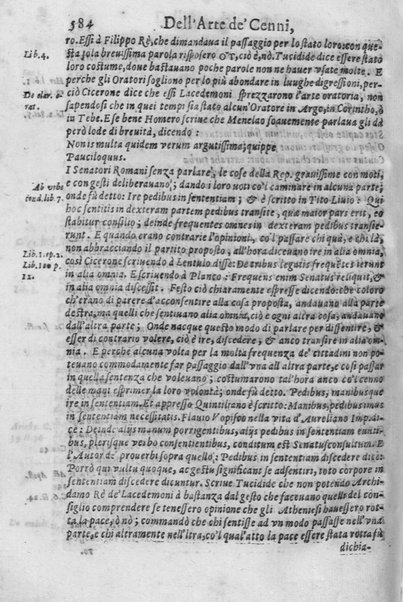 584 Dell'Arte de' Cenni,
ro. Essi à Filippo Rè, che dimandaua il passaggio per lo stato loro: con que-
Lib.4. sta sola breuissima parola risposero &, ciò è, nò. Tucidide dice essere stato
loro costume, doue bastauano poche parole non ne hauer vsate molte. E
perche gli Oratori sogliono per lo più abondare in lunghe digressioni, per-
ciò Cicerone dice che essi Lacedemoni sprezzarono l'arte oratoria, non
sapendosi che in quei tempi sia stato alcun'Oratore in Argo, in Corintho, ò
in Tebe. E se bene Homero scriue che Menelao soauemente parlaua gli dà
però lode di breuità, dicendo:
Non is multa quidem verum argutissima; quippe
Pauciloquus.
I Senatori Romani senza parlare; le cose della Rep. grauissime con moti,
Ab vrbe e con gesti deliberauano; dando i loro uoti co'l caminare in alcuna parte;
cond. lib. 7. onde fù detto: Ire pedibus in sententiam; & è scritto in Tito Liuio è Qui
hoc sentitis in dexteram partem pedibus transite, qua maior pars erit, eo
stabitur consilio; deinde frequentes omneis in dexteram pedibus transie-
runt. E quando erano contrarie l'opinioni, co'l passare chi quà, e chi là,
Lib.1. ep.2. non abbracciando il partito proposto, all'hora diceuano ire in alia omnia,
Lib.10 ep. così Cicerone scriuendo à Lentulo disse: Deparibus legatis frequētes ierunt
12. in alia omnia. E scriuendo à Planco: Frequens enim Senatus reliquit, & in
in alia omnia discessit. Festo ciò chiaramente espresse dicendo: che coloro
ch'erano di parere d'acconsentire alla cosa proposta, andauano alla parte
destra, ma quelli che sentiuano alia omnia, ciò è ogni altra cosa, andauano
dall'altra parte; Onde nacque questo modo di parlare per dissentire, &
esser di contrario volere, ciò è ire, discedere; & anco transire in alia om-
nia. E perche alcuna volta per la molta frequenza de' cittadini non po-
teuano commodamente far passaggio dall'vna all'altra parte, e così passar
in quella sentenza che voleuano; costumarono tal'hora anco co'l cenno
delle mani esprimer la loro volontà; onde fù detto. Pedibus, manibusque
ire in sententiam. Et appresso Quintiliano è scritto: Manibus, pedibusinus
in sententiam necessitatis. Flauio Vopisco nella vita d'Aureliano Impera-
ce: Deinde alijs manum porrigentibus, alijs pedibus in sententiam eunti-
bus, plerisque verbo consentientibus, conditum est Senatusconsultum. E
l'Autor de prouerbi sopra quello: Pedibus in sententiam discedere dice:
Porrò qui vultu quoque, ac gestu significans se adsentiri, toto corpore in
sententiam discedere dicuntur. Scriue Tucidide che non potendo Archi-
damo Rè de' Lacedemoni à bastanza dal gesto che faceuano quelli del con-
siglio comprendere se tenessero opinione che gli Atheniesi hauessero rot-
ta la pace, ò nò; commandò che chi sentisse ad vn modo passasse nell'vna
parte, e chi altramente nell'altra, co'l qual'atto la pace essere stata rotta fù
dichia-